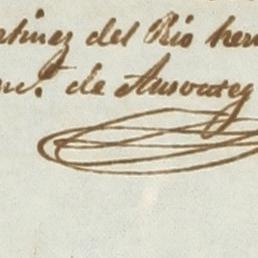 rtinez del Rio her
de Ansorreg